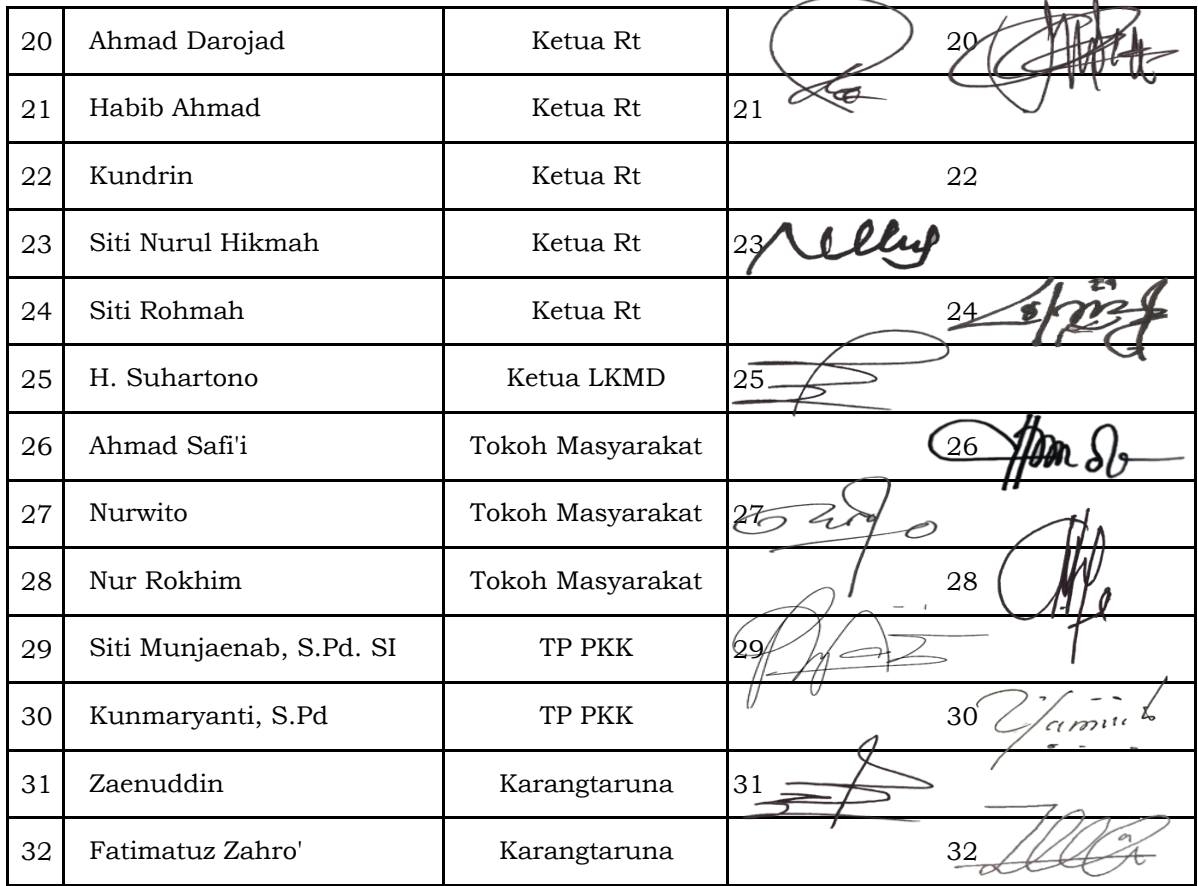 20 Ahmad Darojad Ketua Rt 20
21 Habib Ahmad Ketua Rt 21
22 Kundrin Ketua Rt 22
23 Siti Nurul Hikmah Ketua Rt 23
24 Siti Rohmah Ketua Rt 24
25 H. Suhartono Ketua LKMD 25
26 Ahmad Safi'i Tokoh Masyarakat 26
27 Nurwito Tokoh Masyarakat 27
28 Nur Rokhim Tokoh Masyarakat 28
29 Siti Munjaenab, S.Pd. SI TP PKK 29
30 Kunmaryanti, S.Pd TP PKK 30
31 Zaenuddin Karangtaruna 31
32 Fatimatuz Zahro' Karangtaruna 32